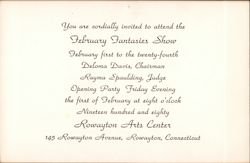 You are cordially invited to attend the
February Fantasies Show
February first to the twenty-fourth
Deloma Davis, Chairman
Rayma Spaulding, Judge
Opening Party Friday Evening
the first of February at eight o'clock
Nineteen hundred and eighty
Rowayton Arts Center
145 Rowayton Avenue, Rowayton, Connecticut